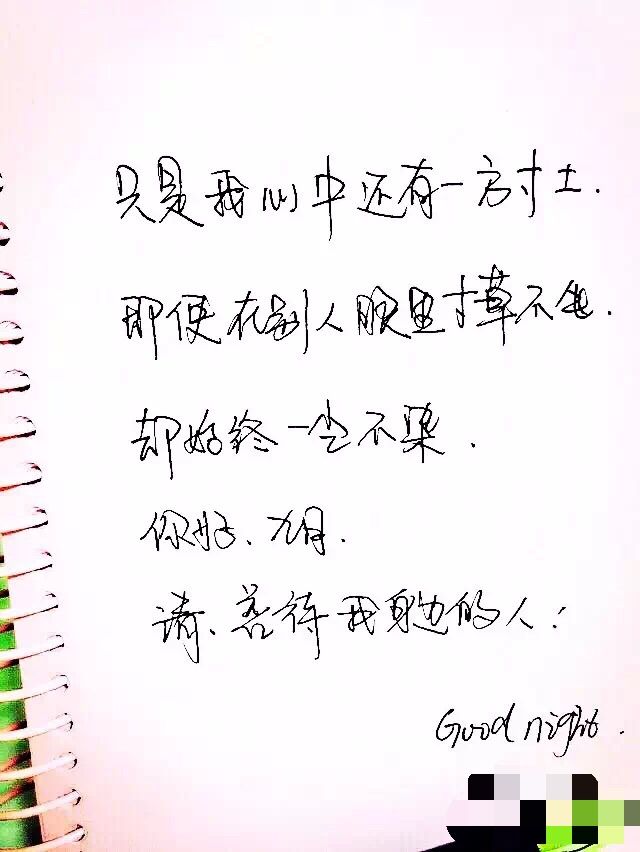 只是我心中还有一方寸土.
即使在别人眼里寸草不生.
却始终一尘不染.
你好、九月.
请、善待我身边的人:
Good night.